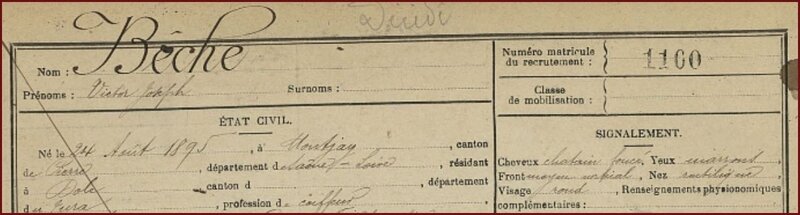 Décédé
Bêche
Nom :
Prénoms : Victor Joseph Surnoms :
Numéro matricule
du recrutement : 1160
Classe
de mobilisation :
ÉTAT CIVIL.
Né le 24 Août 1895, à Montjay, canton
de Pierre, département Saône-Loire, résidant
à Dole, canton d, département
du Jura, profession de coiffeur
SIGNALEMENT.
Cheveux chatain foncé Yeux marrons
Front moyen vertical Nez rectiligne
Visage rond, Renseignements physionomiques
complémentaires :